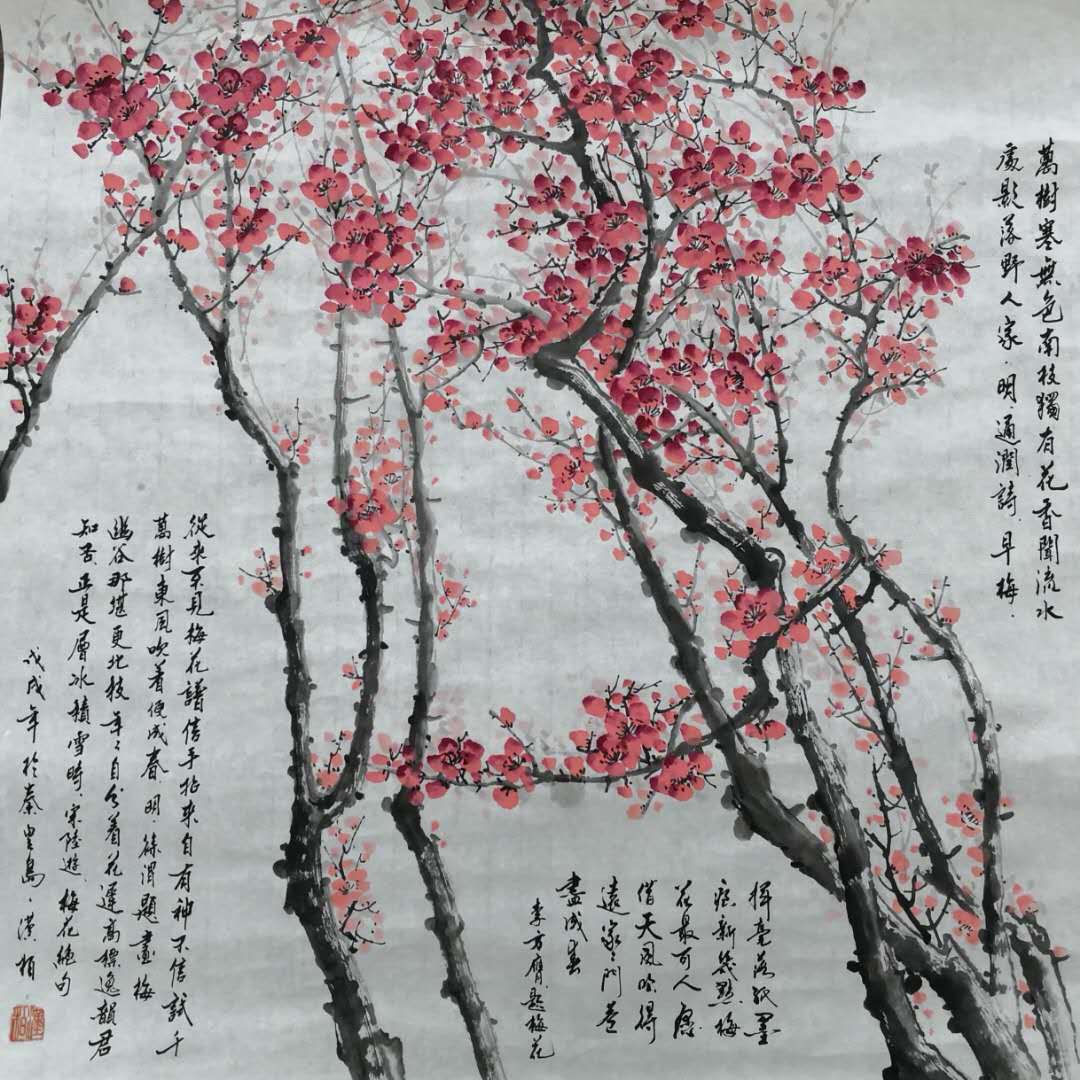 萬樹寒無色南枝獨有花香聞流水
處影落野人家·明·通潤詩·早梅·
揮毫落紙墨
痕新幾點梅
花最可人願
借天風吹得
遠家〻門巷
盡成春
李方膺題梅花
從來不見梅花譜信手拈來自有神不信試千
萬樹東風吹着便成春·明·徐渭題畫梅
幽谷那堪更北枝年〻自分着花遲高標逸韻君
知否正是層冰積雪時·宋陸遊·梅花絕句
戊戌年於秦皇島·漢柏·